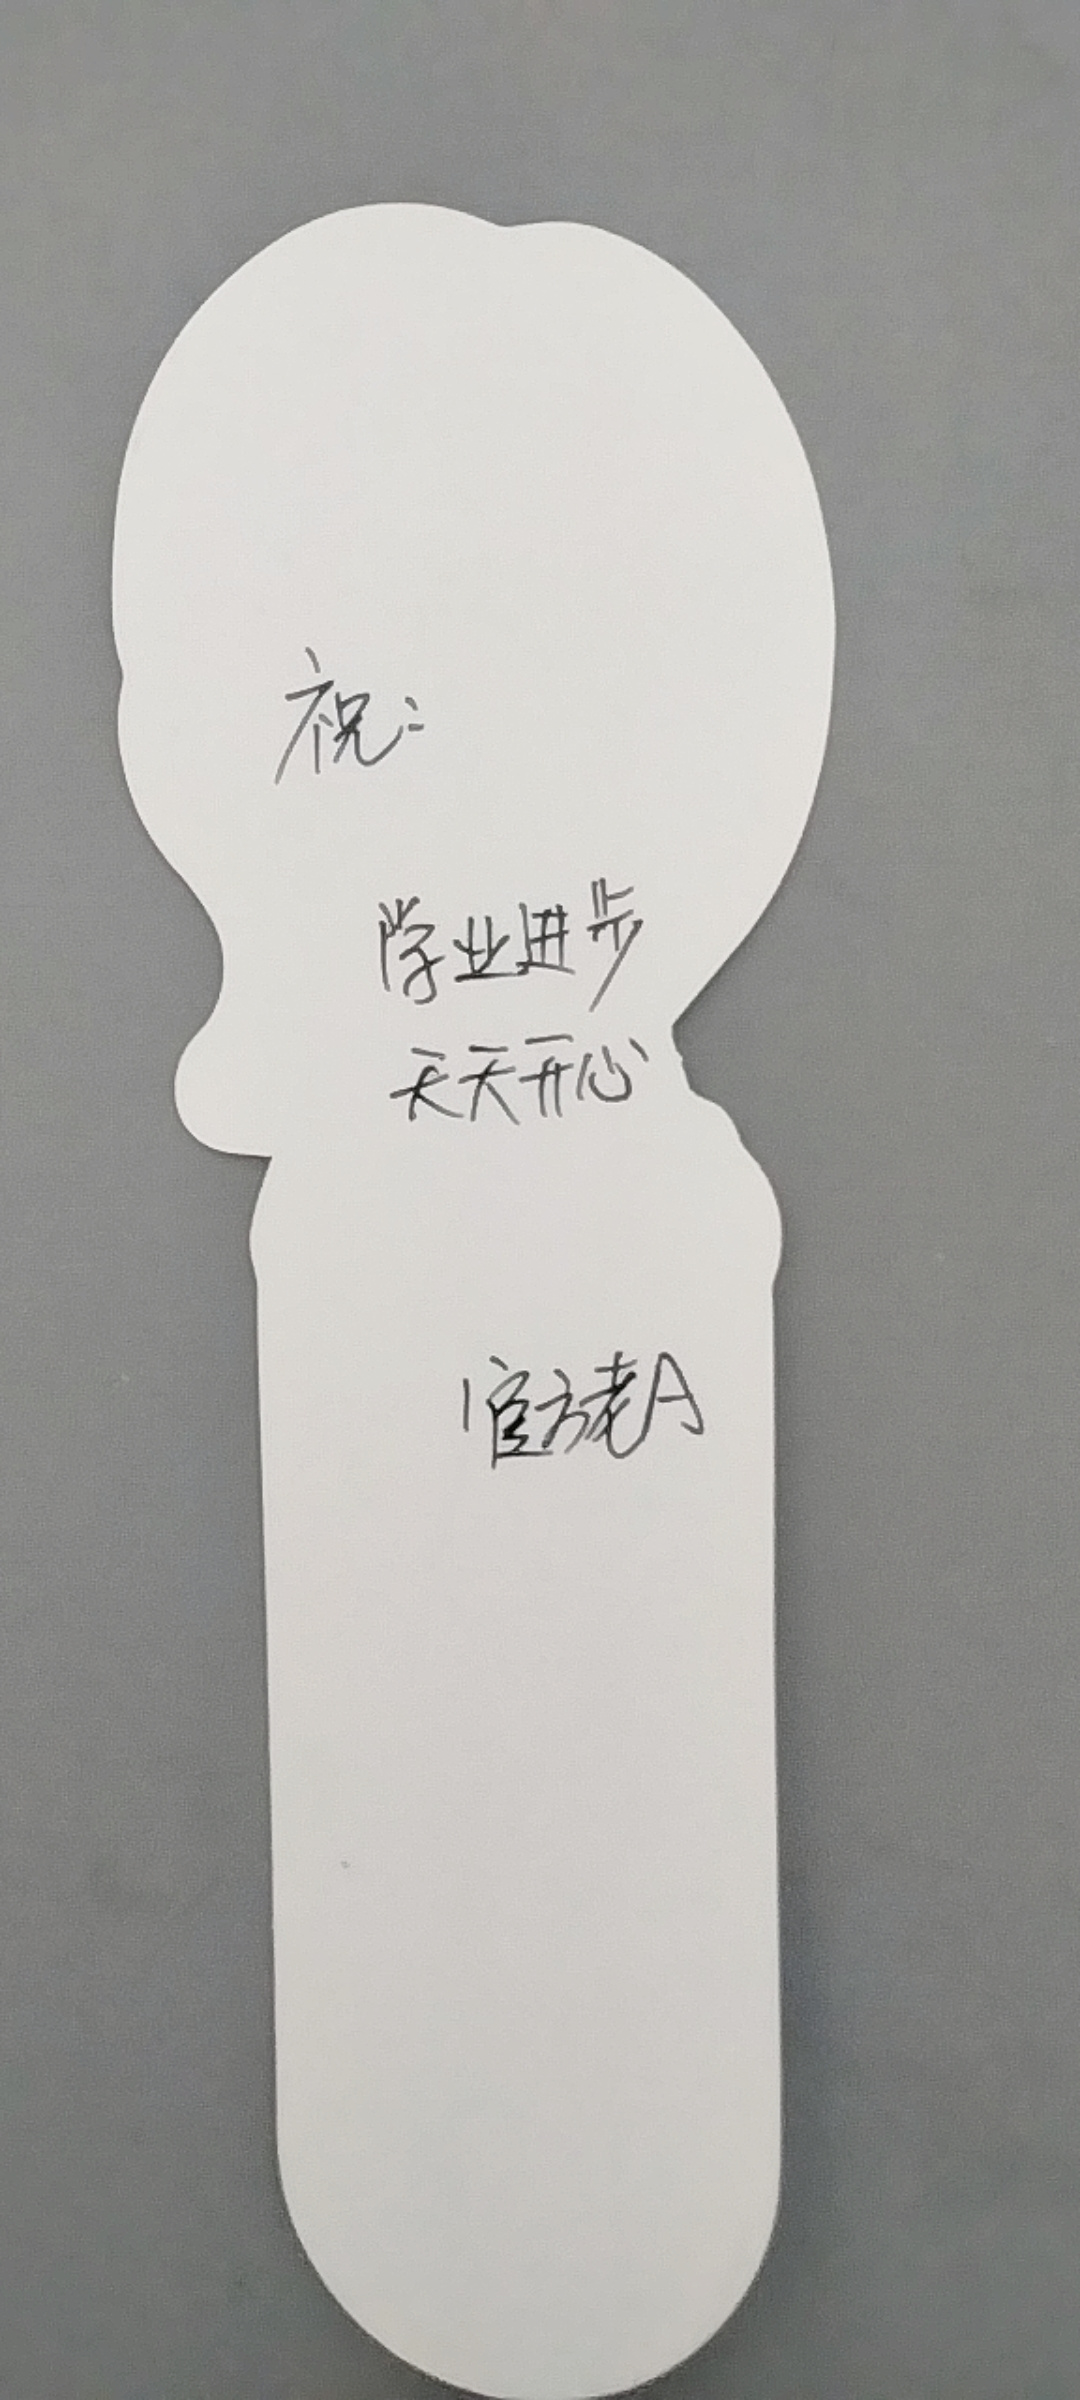 祝：
学业进步
天天开心
官方老A